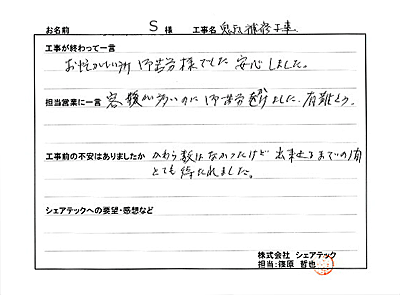 お名前 S 様 工事名 鬼瓦補修工事
工事が終わって一言
お忙しい所 御苦労様でした 安心しました。
担当営業に一言 御苦労 ました。有難とう。
工事前の不安はありましたか かわら 数は なかったけど 出来 までの間
とても 待たれました。
シェアテックへの要望・感想など
株式会社 シェアテック
担当:篠原 哲也